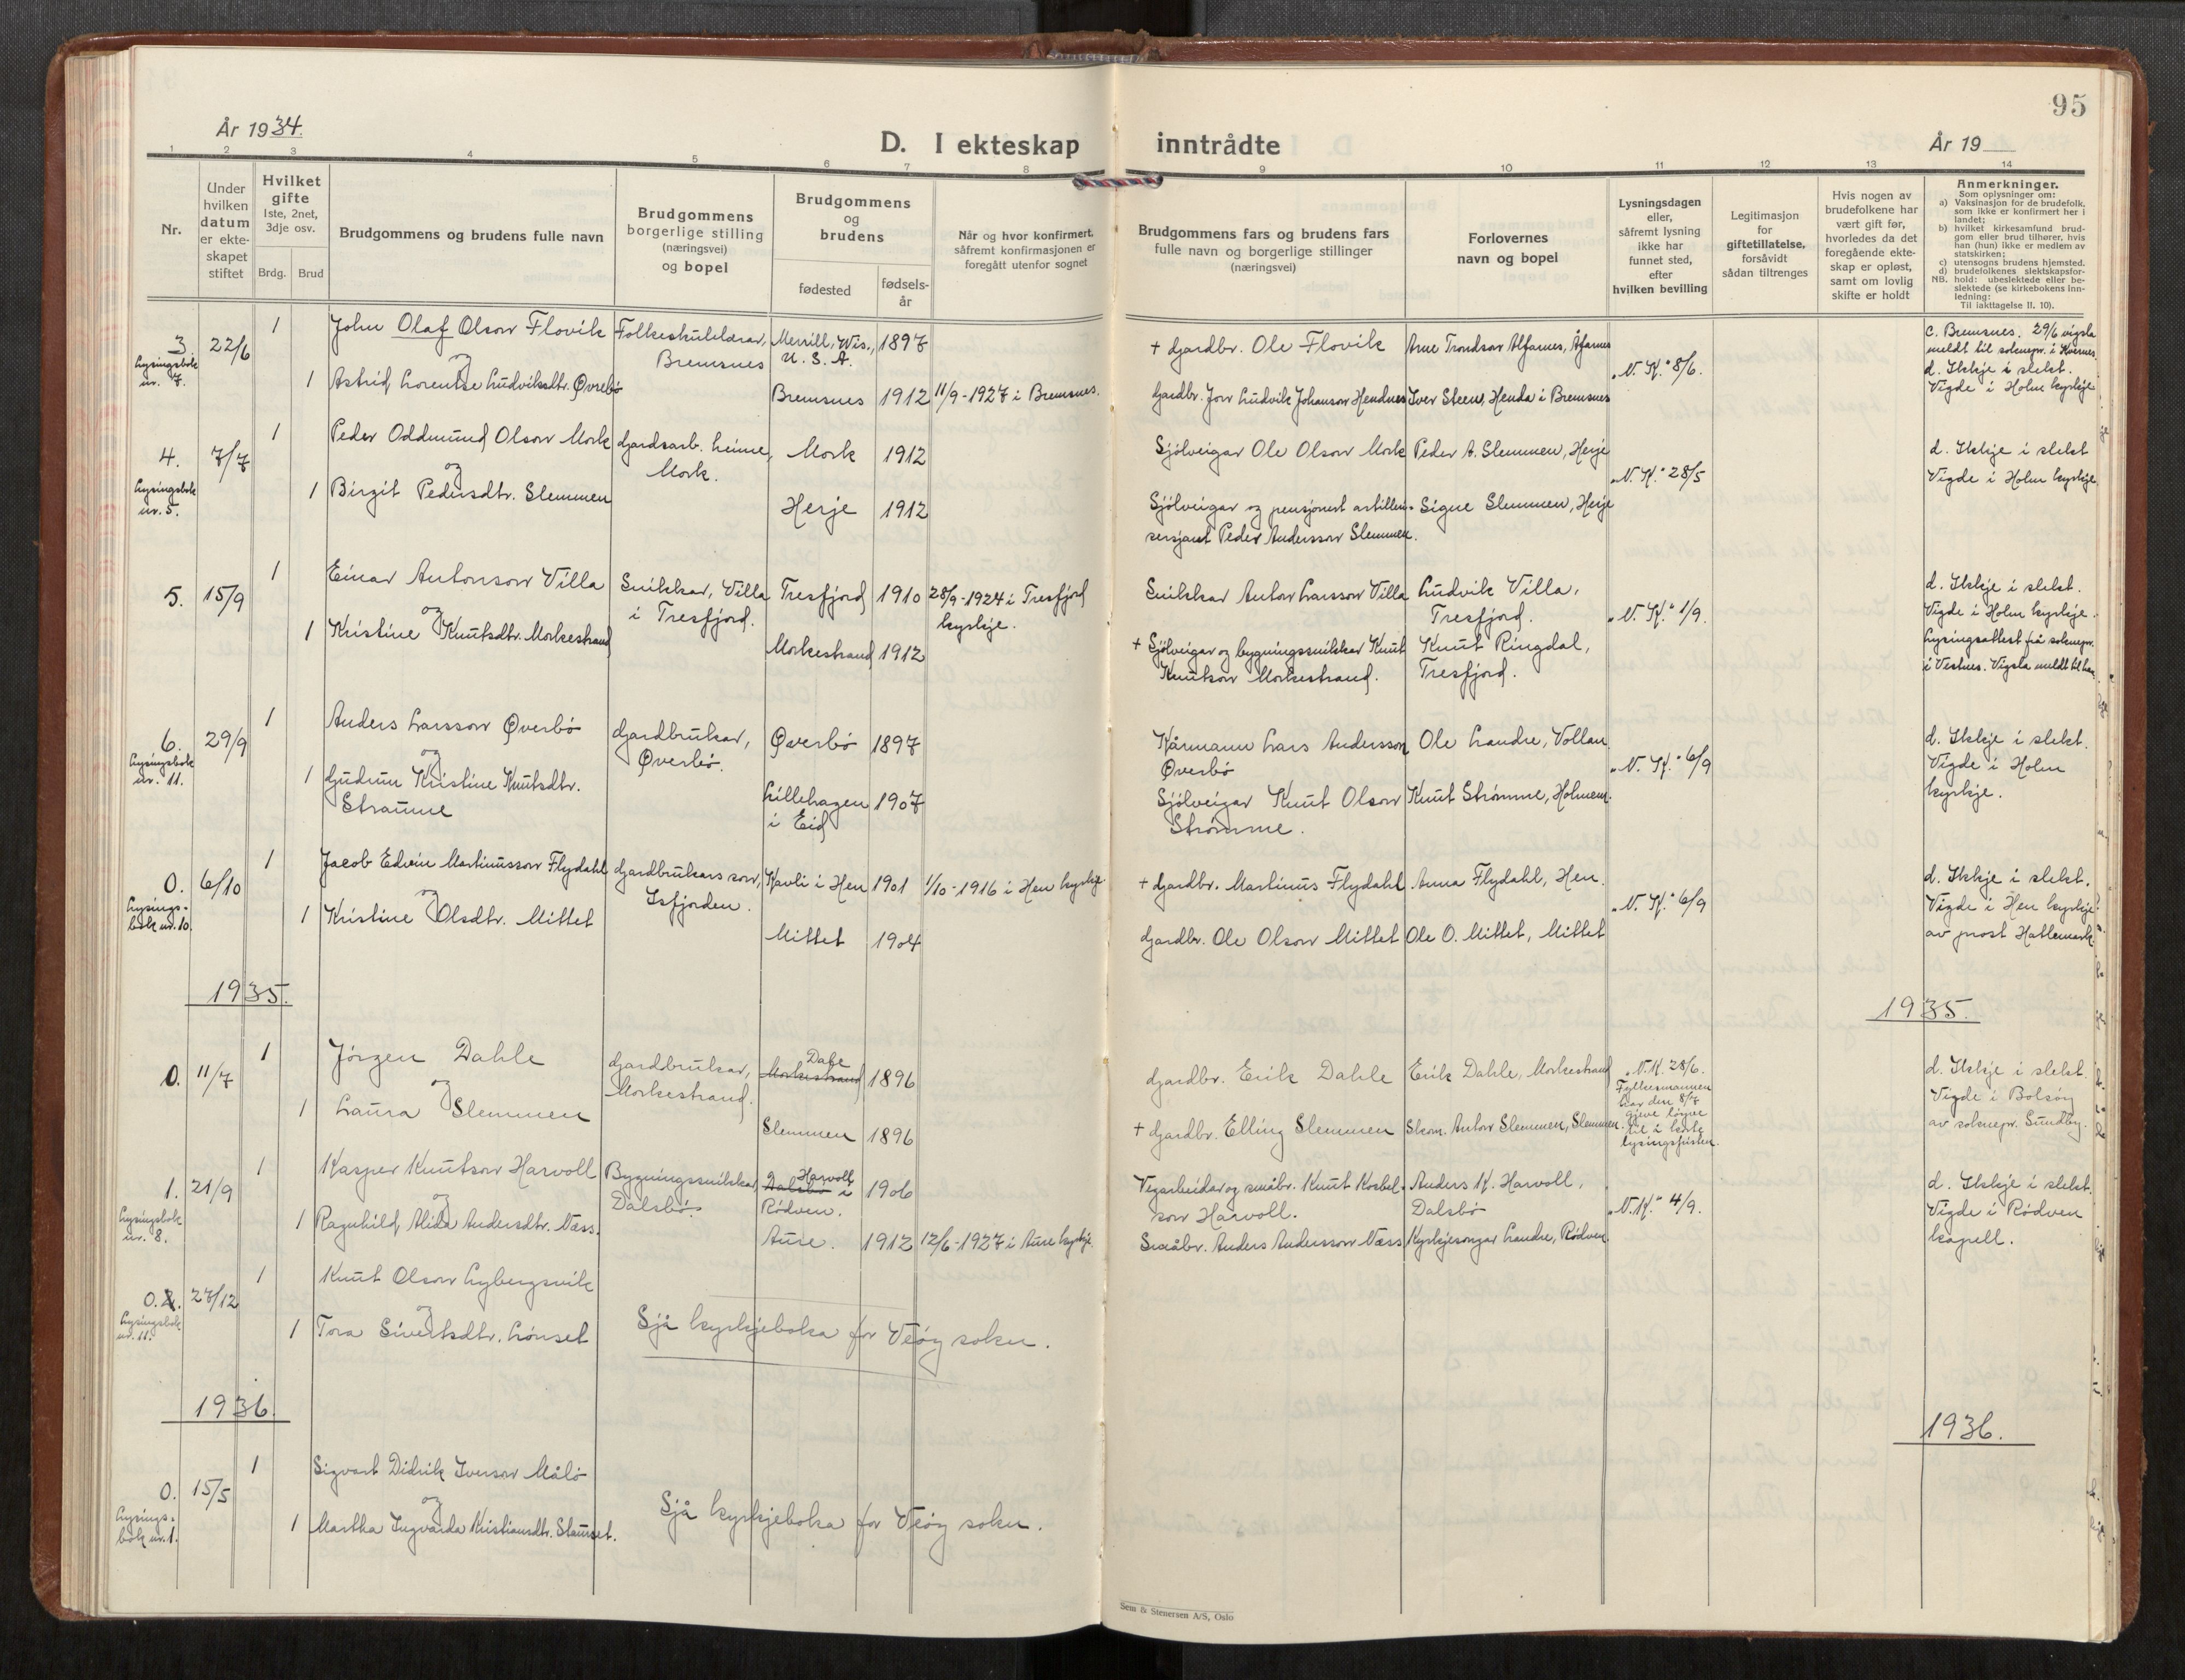 95
År 1934.
D. I ekteskap inntrådte
År 19
1 2 3 4 5 6 7 8 9 10 11 12 13 14
Nr.
Under hvilken datum er ekte-skapet stiftet
Hvilket gifte
1ste, 2net, 3dje osv.
Brdg. Brud
Brudgommens og brudens fulle navn
Brudgommens borgerlige stilling (næringsvei) og bopel
Brudgommens og brudens
fødested
fødsels-år
Når og hvor konfirmert, såfremt konfirmasjonen er foregått utenfor sognet
Brudgommens fars og brudens fars fulle navn og borgerlige stillinger (næringsvei)
Forlovernes navn og bopel
Lysningsdagen eller, såfremt lysning ikke har funnet sted, efter hvilken bevilling
Legitimasjon for giftetillatelse, forsåvidt sådan tiltrenges
Hvis nogen av brudefolkene har vært gift før, hvorledes da det foregående ekte-skap er opløst, samt om lovlig skifte er holdt
Anmerkninger.
Som oplysninger om:
a) Vaksinasjon for de brudefolk, som ikke er konfirmert her i landet;
b) hvilket kirkesamfund brud-gom eller brud tilhører, hvis han (hun) ikke er medlem av statskirken;
c) utensogns brudens hjemsted.
d) brudefolkenes slektskapsfor-hold: ubeslektede eller be-slektede (se kirkebokens inn-ledning:
NB.
Til iakttagelse II. 10).
3 Lysingsbok nr. 7.
22/6
1
John Olaf Olson Flovik
og
1 Astrid Lorentse Ludviksdtr. Øvrebø
Folkeskulelærar, Bremsnes
Merrill, Wis., U.S.A. 1897
Bremsnes 1912 11/9-1927 i Bremsnes.
+ Gardbr. Ole Flovik
Arne Trondson Alfarnes, Åfarnes
Gardbr. Jon Ludvik Johanson Hendnes
Iver Steen, Henda i Bremsnes
"N. K." 8/6.
c. Bremsnes. 29/6 vigsla
meldt til soknepr. i Kvernes.
d. Ikkje i slekt.
Vigde i Holm kyrkje
4. Lysingsbok nr. 5.
7/7
1
Peder Oddmund Olson Mork
og
1 Birgit Pedersdtr. Slemmen
Gardsarb. heime, Mork.
Mork 1912
Herje 1912
Sjölveigar Ole Olson Mork
Peder A. Slemmen, Herje
Sjölveigar og pensjonert artilleri-
sersjant Peder Andersson Slemmen.
Signe Slemmen, Herje
"N. K." 28/5
d. Ikkje i slekt
Vigde i Holm kyrkje.
5. 15/9
1
Einar Antonson Villa
og
1 Kristine Knutsdtr. Morkestrand
Snikkar, Villa i Tresfjord.
Tresfjord 1910 28/9-1924 i Tresfjord kyrkje.
Morkestrand 1912
Snikkar Anton Larsson Villa
Ludvik Villa, Tresfjord.
+ Sjölveigar og bygningssnikkar Knut
Knutson Morkestrand.
Knut Ringdal, Tresfjord.
"N. K." 1/9.
d. Ikkje i slekt.
Vigde i Holm kyrkje.
Lysingsattest frå soknepr.
i Vestnes. Vigsla meldt til han
6. Lysingsbok nr. 11.
29/9
1
Anders Larsson Øverbö
og
1 Gudrun Kristine Knutsdtr. Straume
Gardbrukar, Øverbö.
Øverbö 1897
Lillehagen i Eid 1907
Kårmann Lars Andersson Øverbö
Ole Landre, Vollan
Sjölveigar Knut Olson Strömme.
Knut Strömme, Holmem.
"N. K." 6/9
d. Ikkje i slekt.
Vigde i Holm kyrkje.
0. Lysings-bok nr. 10.
6/10
1
Jacob Edvin Martinusson Flydahl
og
1 Kristine Olsdtr. Mittet
Gardbrukars son, Isfjorden.
Kavli i Hen 1901 1/10-1916 i Hen kyrkje.
Mittet 1904
+ Gardbr. Martinus Flydahl
Anna Flydahl, Hen.
Gardbr. Ole Olson Mittet
Ole O. Mittet, Mittet
"N. K." 6/9
d. Ikkje i slekt.
Vigde i Hen kyrkje
av prost Hattemark.
1935.
1935.
0. 11/7
1
Jörgen Dahle
og
1 Laura Slemmen
Gardbrukar, Morkestrand.
Dale
Morkestrand 1896
Slemmen 1896
Gardbr. Erik Dahle
Erik Dahle, Morkestrand
+ Gardbr. Elling Slemmen
Skom. Anton Slemmen, Slemmen.
"N.K. 28/6.
Fylkesmannen
har den 8/7
gjeve löyve
til å korte
lysingsfristen.
d. Ikkje i slekt.
Vigde i Bolsöy
av soknepr. Sundby.
1. Lysingsbok nr. 8.
21/9
1
Kasper Knutson Harvoll
og
1 Ragnhild Alida Andersdtr. Næss.
Bygningssnikkar, Dalsbö.
Harvoll
Dalsbö i Rödven. 1906
Aure. 1912 12/6-1927 i Aure kyrkje.
Vegarbeidar og småbr. Knut Kosbel-
son Harvoll.
Anders K. Harvoll, Dalsbö
Småbr. Anders Andersson Næss
Kyrkjesongar Landre, Rödven.
"N.K." 4/9.
d. Ikkje i slekt.
Vigde i Rödven kapell.
0. 2. Lysingsbok nr. 11.
27/12
1
Knut Olson Lybergsvik
og
1 Tora Sivertsdtr. Lönset
Sjå kyrkjeboka for Veöy sokn.
1936.
1936.
0. Lysings-bok nr. 1.
15/5
1
Sigvart Didrik Iverson Målö
og
1 Martha Ingvarda Kristiansdtr. Stauset.
Sjå kyrkjeboka for Veöy sokn.
Sem & Stenersen A/S, Oslo